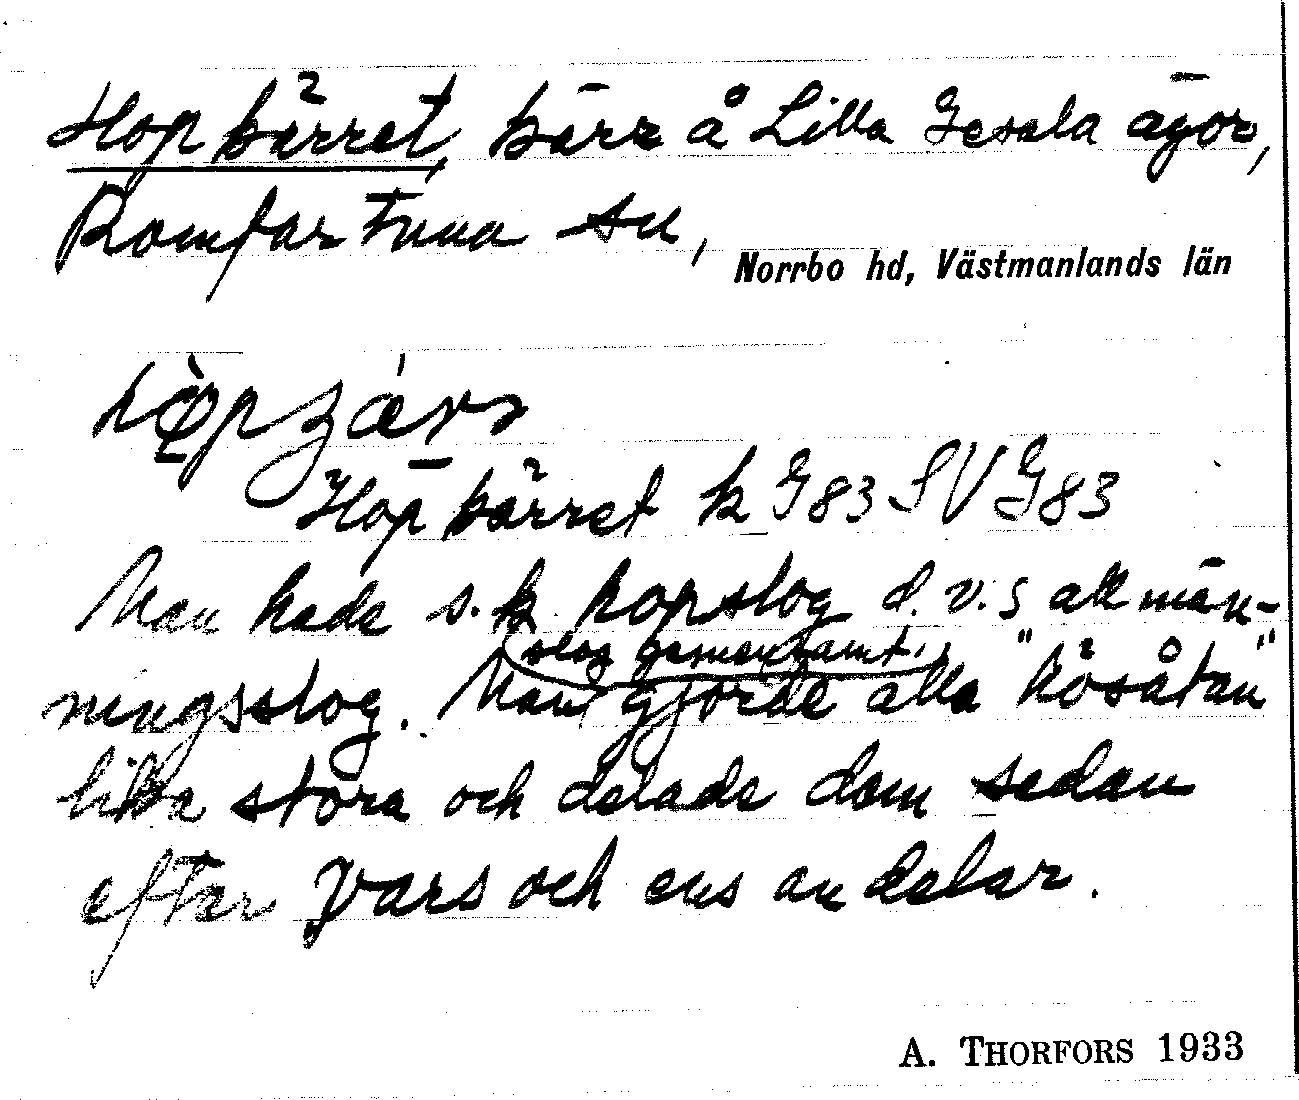 Hopkärret, kärr å Lilla Gesala ägor,
Romfartuna sn,
Norrbo hd, Västmanlands län
Hopkärret k G83 SV G83
Man hade s.k. hopslog d.v.s allmän-
slog gemensamt.
ningsslog. Man gjorde alla "hösåtan"
lika stora och delade dom sedan
eftar vars och ens andelar.
A. THORFORS 1933